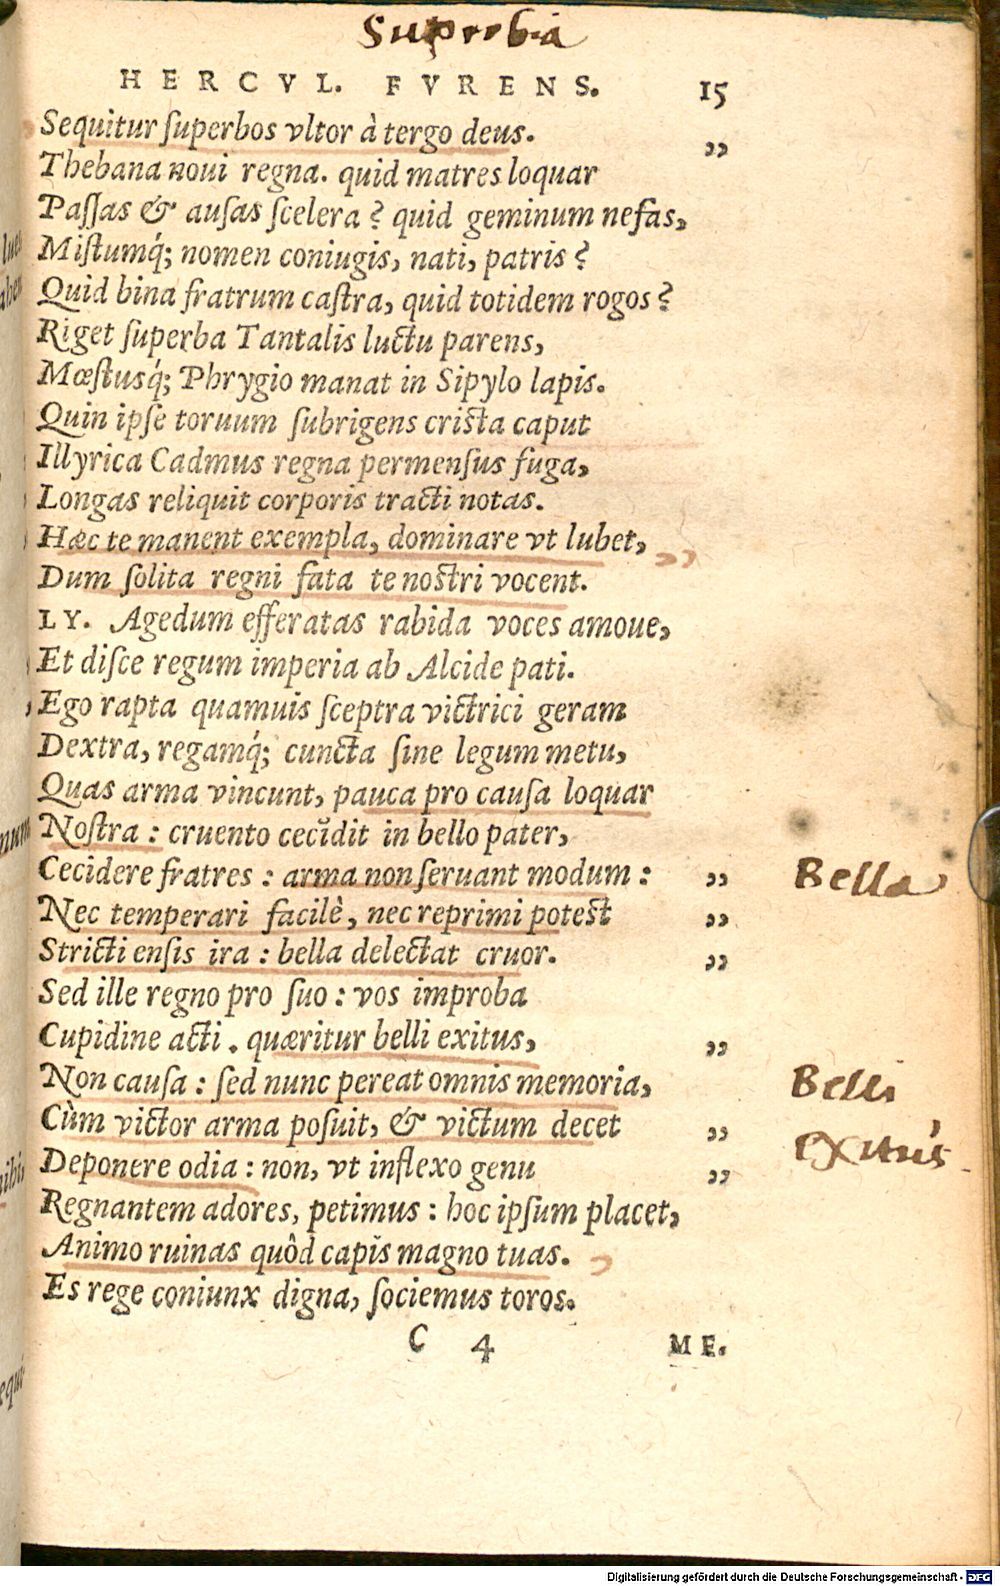 Superbia
HERCVL. FVRENS. 15
Sequitur ſuperbos vltor à tergo deus. „
Thebana noui regna. quid matres loquar
Paſſas & auſas ſcelera? quid geminum nefas,
Miſtumq́; nomen coniugis, nati, patris?
Quid bina fratrum caſtra, quid totidem rogos?
Riget ſuperba Tantalis luctu parens,
Mœſtusq́; Phrygio manat in Sipylo lapis.
Quin ipſe toruum ſubrigens criſta caput
Illyrica Cadmus regna permenſus fuga,
Longas reliquit corporis tracti notas.
Hæc te manent exempla, dominare vt lubet, „
Dum ſolita regni fata te noſtri vocent.
LY. Agedum efferatas rabida voces amoue,
Et diſce regum imperia ab Alcide pati.
Ego rapta quamuis ſceptra victrici geram
Dextra, regamq́; cuncta ſine legum metu,
Quas arma vincunt, pauca pro cauſa loquar
Noſtra: cruento cecĭdit in bello pater,
Cecidere fratres: arma non ſeruant modum: „ Bella
Nec temperari facilè, nec reprimi poteſt „
Stricti enſis ira: bella delectat cruor. „
Sed ille regno pro ſuo: vos improba
Cupidine acti. quæritur belli exitus, „
Non cauſa: ſed nunc pereat omnis memoria, Belli
Cùm victor arma poſuit, & victum decet „ exitus
Deponere odia: non, vt inflexo genu „
Regnantem adores, petimus: hoc ipſum placet,
Animo ruinas quôd capis magno tuas.
Es rege coniunx digna, ſociemus toros.
C 4 ME.
Digitalisierung gefördert durch die Deutsche Forschungsgemeinschaft - DFG